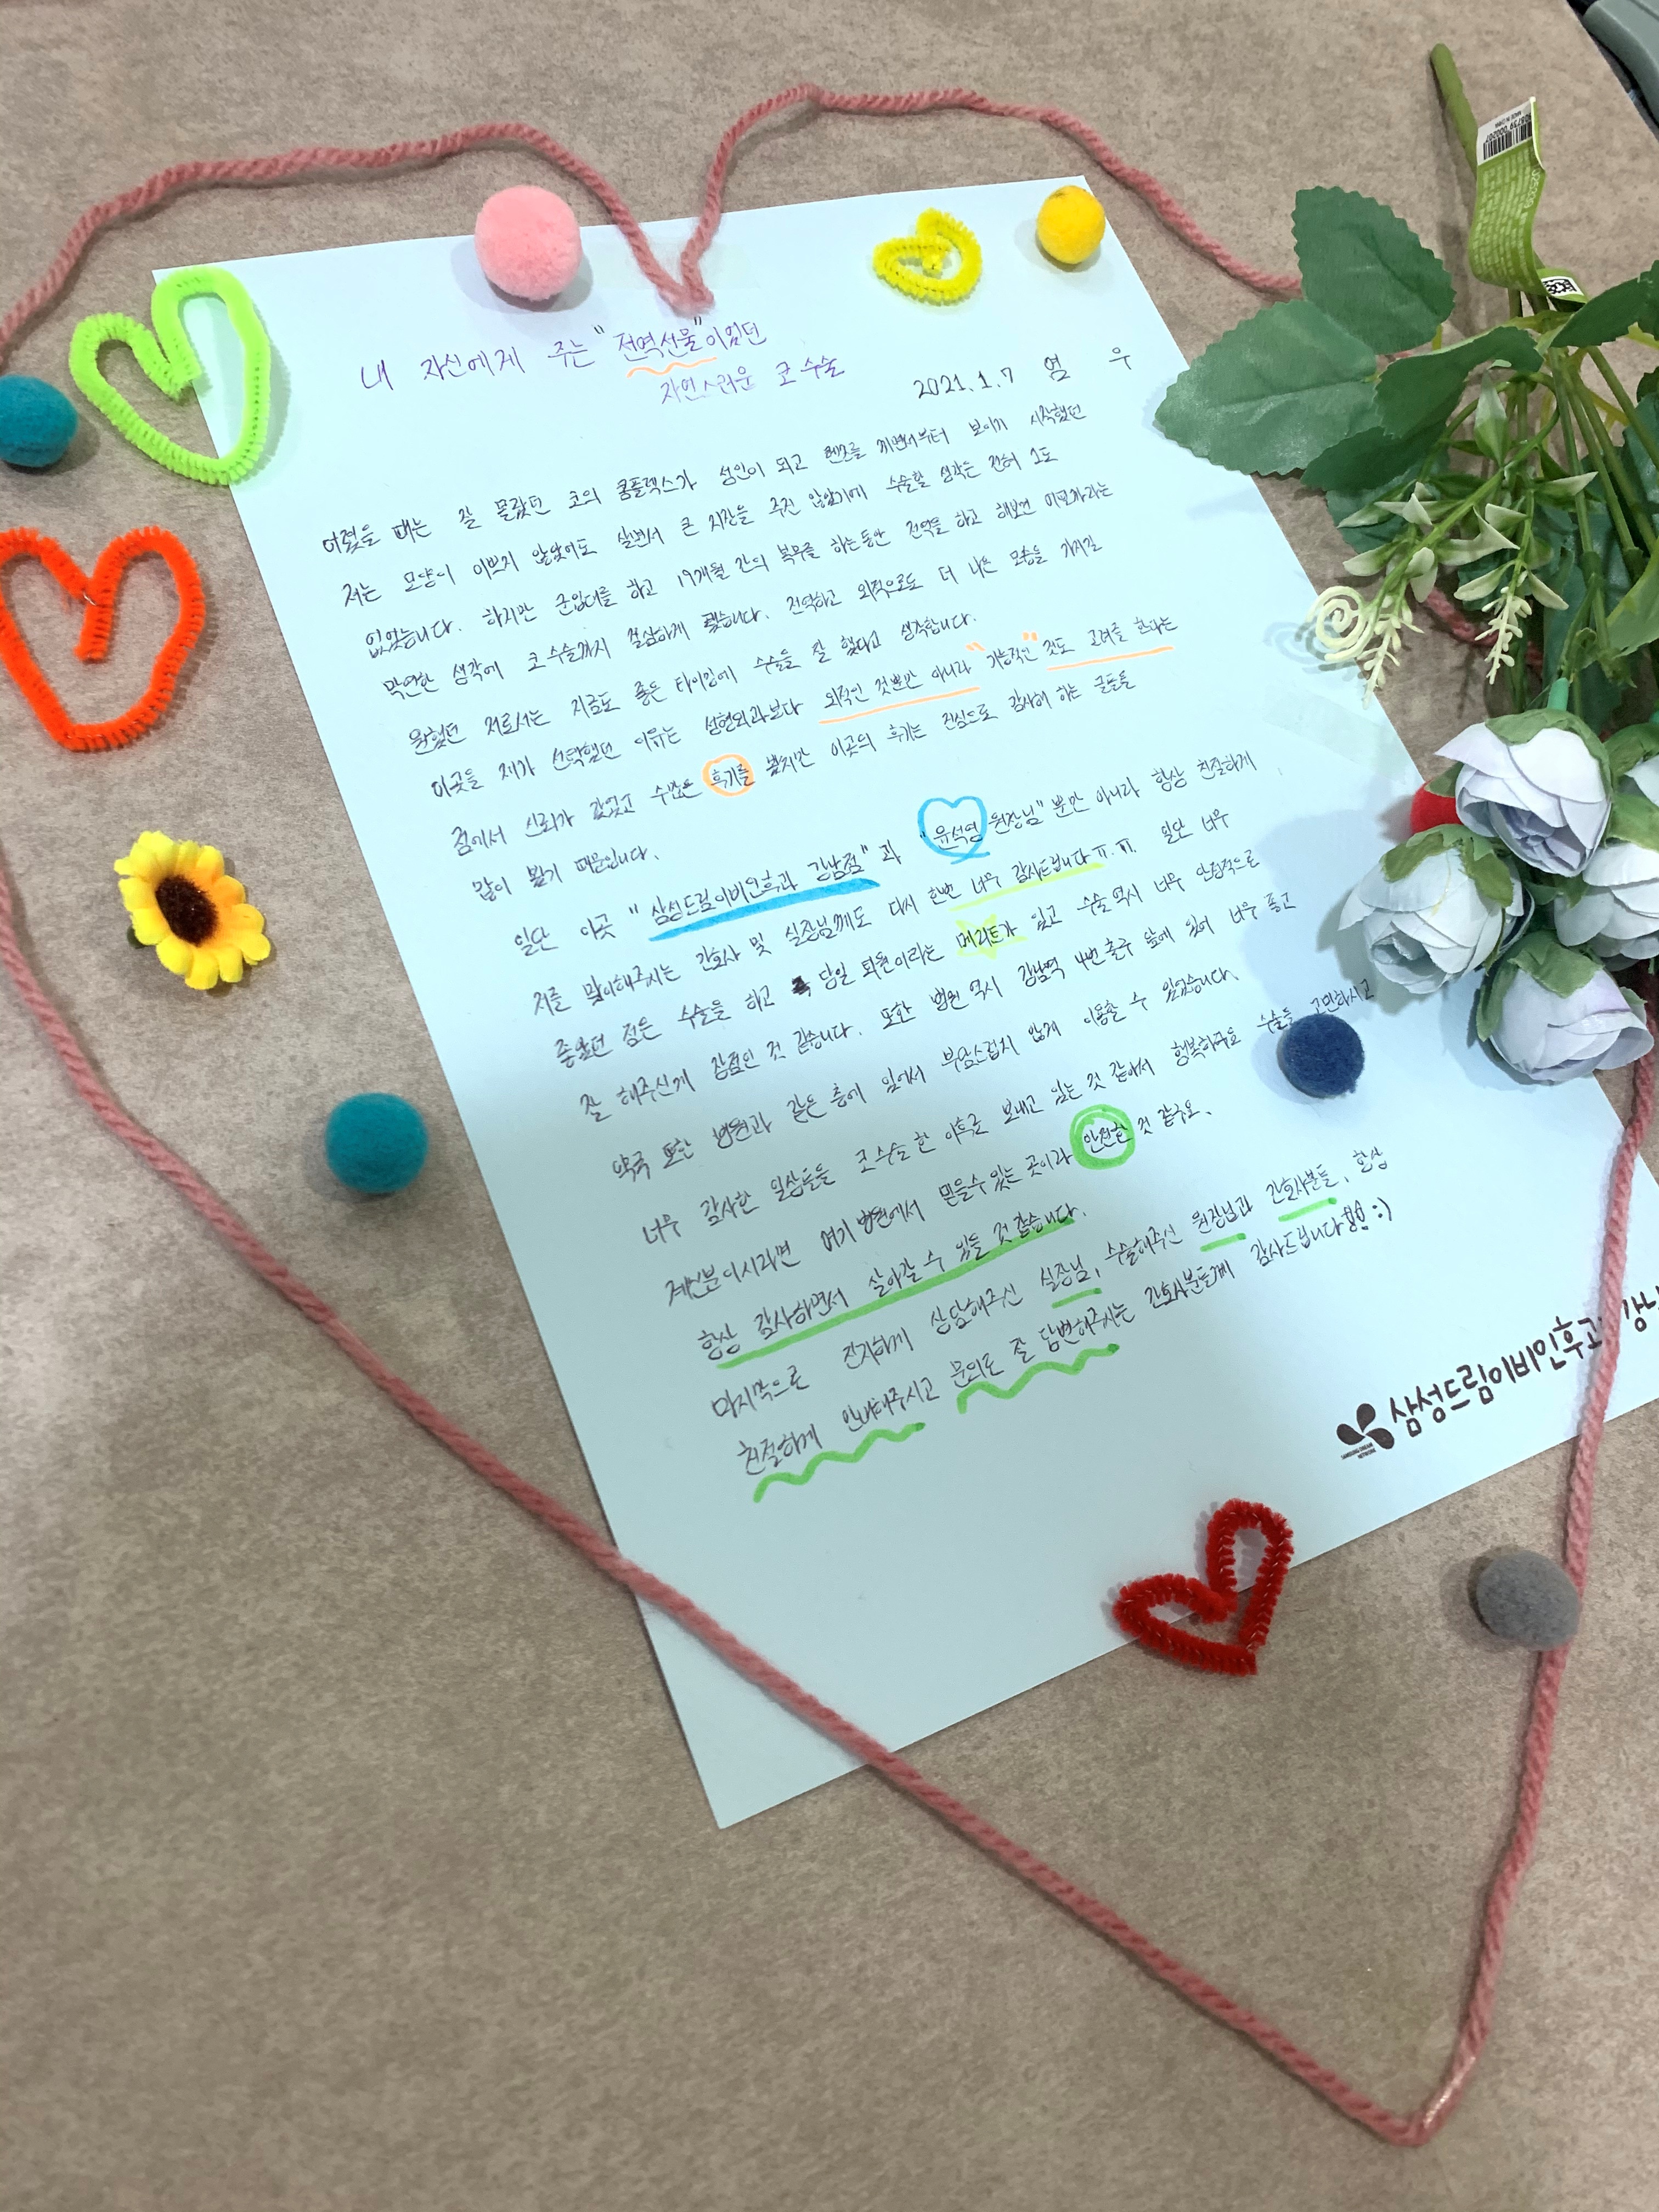 내 자신에게 주는 "전역선물"이었던
자연스러운 코 수술
2021.1.7 염 우
어렸을 때는 잘 몰랐던 코의 콤플렉스가 성인이 되고 렌즈를 끼면서부터 보이기 시작했던
저는 모양이 이쁘지 않았어도 살면서 큰 지장을 주진 않았기에 수술할 생각은 전혀 1도
없었습니다. 하지만 군입대를 하고 19개월 간의 복무를 하는동안 전역을 하고 해보면 어떨까라는
막연한 생각에 코 수술까지 결심하게 됐습니다. 전역하고 외적으로도 더 나은 모습을 가지길
원했던 저로서는 지금도 좋은 타이밍에 수술을 잘 했다고 생각합니다.
이곳을 제가 선택했던 이유는 성형외과보다 외적인 것뿐만 아니라 "기능적인" 것도 고려를 한다는
점에서 신뢰가 갔었고 수많은 후기를 봤지만 이곳의 후기는 진심으로 감사해 하는 글들을
많이 봤기 때문입니다.
일단 이곳 "삼성드림이비인후과 강남점" 과 "윤석영 원장님" 뿐만 아니라 항상 친절하게
저를 맞이해주시는 간호사 및 실장님께도 다시 한번 너무 감사드립니다 ㅠ.ㅠ 일단 너무
좋았던 점은 수술을 하고 당일 퇴원이라는 메리트가 있고 수술 역시 너무 안정적으로
잘 해주신게 장점인 것 같습니다. 또한 병원 역시 강남역 4번 출구 앞에 있어 너무 좋고
약국 또한 병원과 같은 층에 있어서 부담스럽지 않게 이용할 수 있었습니다.
너무 감사한 일상들을 코 수술 한 이후로 보내고 있는 것 같아서 행복하구요 수술을 고민하시고
계신분이시라면 여기 병원에서 믿을수 있는 곳이라 안전한 것 같구요.
항상 감사하면서 살아갈 수 있을 것 같습니다.
마지막으로 진지하게 상담해주신 실장님, 수술해주신 원장님과 간호사분들, 항상
친절하게 안내해주시고 문의도 잘 답변해주시는 간호사분들께 감사드립니다 :)
삼성드림이비인후과 강남